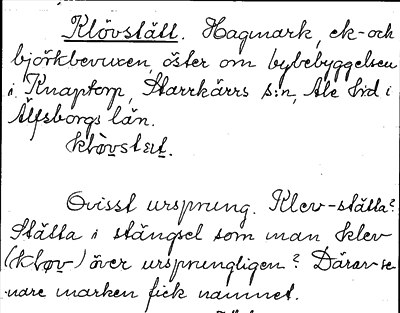 Klövställ. Hagmark, ek- och
björkbevuxen, öster om bybebyggelsen
i Knaptorp, Starrkärrs s:n, Ale hd i
Älfsborgs län.
Ovisst ursprung. Klev-ställa?
Stätta i stängsel som man klev
över ursprungligen? Därav se-
nare marken fick namnet.